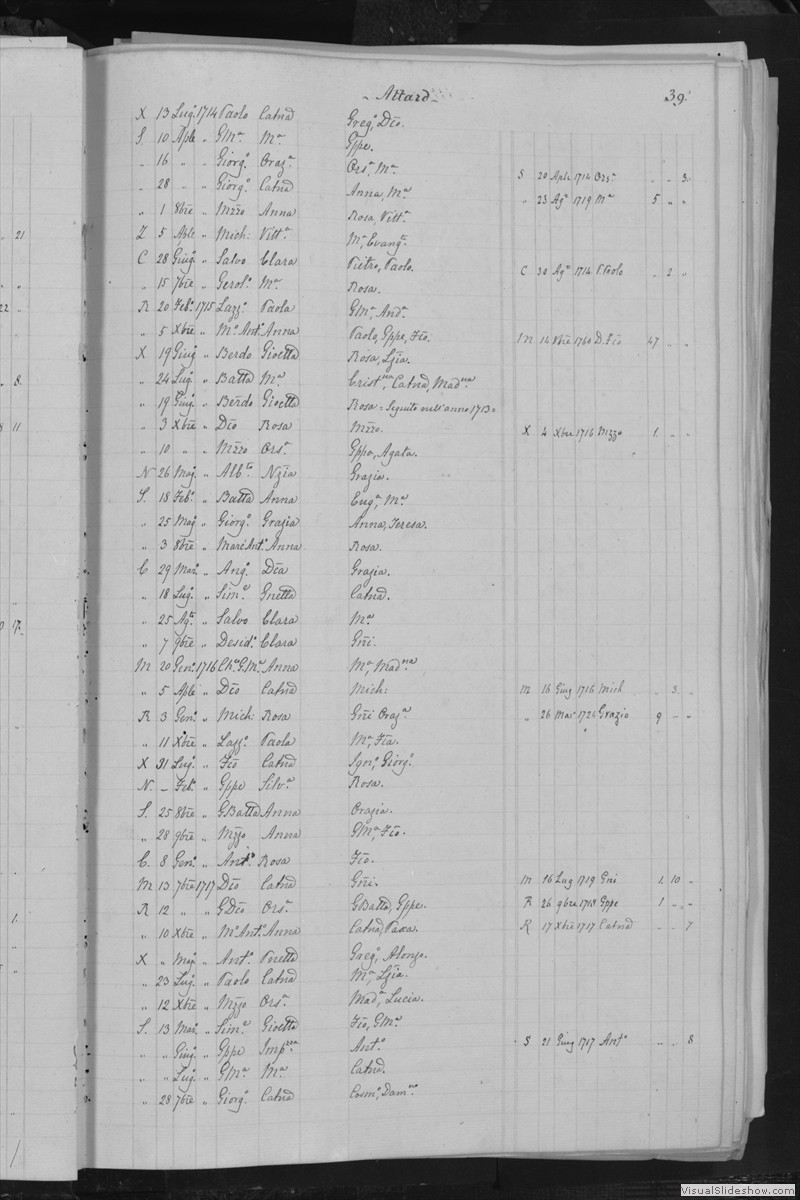 - Attard - 39.
X 13 Lug.º 1714 Paolo Catnd Greg.º, Dco.
S. 10 Aple „ GMª Mª Gppe.
„ 16 „ „ Giorg.º Orazª Orsª, Mª S 20 Aple 1714 Orsª „ „ 3
„ 28 „ „ Giorg.º Catnd Anna, Mª „ 23 Agº 1719 Mª 5 „ „
„ 1 8bre „ Mzzo Anna Rosa, Vittª
Z 5 Aple „ Mich: Vittª Mª, Evangª
C 28 Giugº „ Salvo Clara Pietro, Paolo. C 30 Agº 1714 P. Paolo „ 2 „
„ 15 7bre „ Gerolº Mª Rosa.
R 20 Febº 1715 Lazzº Paola GMª, Andª
„ 5 Xbre „ Mº Antº Anna Paolo, Gppe, Fco. M 14 8bre 1760 D. Fco 47 „ „
X 19 Giug „ Berdo Gioetta Rosa, Lzia.
„ 24 Lugº „ Batta Mª Cristina, Catnd, Madna
„ 19 Giugº „ Berdo Gioetta Rosa = Seguito nell'anno 1713 =
„ 3 Xbre „ Dco Rosa Mzzo. X 4 Xbre 1716 Mzzo 1. „ „
„ 10 „ „ Mzzo Orsª Gppa, Agata.
N 26 Magº „ Albto Nzia Grazia.
S. 18 Febº „ Batta Anna Eugª, Mª
„ 25 Magº „ Giorgº Grazia Anna, Teresa.
„ 3 8bre „ Marc'Antº Anna Rosa.
C 29 Marº „ Angº Dca Grazia.
„ 18 Lugº „ Simº Gnetta Catnd.
„ 25 Agto „ Salvo Clara Mª
„ 7 9bre „ Desidº Clara Gni.
M 20 Genº 1716 Chº GMª Anna Mª, Madna
„ 5 Aple „ Dco Catnd Mich: M 16 Giug 1716 Mich „ 3. „
R 3 Genº „ Mich: Rosa Gni Orazª „ 26 Mar 1726 Grazio 9 „ „
„ 11 Xbre „ Lazzº Paola Mª, Fca.
X 31 Lugº „ Fco Catnd Sgnº, Giorgº.
N. – Febº „ Gppe Silvª Rosa.
S. 25 8bre „ GBatta Anna Orazia.
„ 28 9bre „ Mzzo Anna GMª, Fco.
C. 8 Genº „ Antº Rosa Fco.
M 13 7bre 1717 Dco Catnd Gni. M 16 Lug 1719 Gni 1. 10 „
R 12 „ „ GDco Orsª GBatta, Gppe. R 26 9bre 1718 Gppe 1 „ „
„ 10 Xbre „ Mº Antº Anna Catnd, Paxa. R 17 Xbre 1717 Catnd „ „ 7
X „ Magº „ Antº Pnetta Gregº, Alonzo.
„ 23 Lugº „ Paolo Catnd Mª, Lzia.
„ 12 Xbre „ Mzzo Orsª Madª, Lucia.
S. 13 Marº „ Simº Gioetta Fco, GMª
„ „ Giugº „ Gppe Impria Antº S 21 Giug 1717 Antº „ „ 8
„ „ Lugº „ GMª Mª Catnd.
„ 28 7bre „ Giorgº Catnd Cosmº, Damno
VisualSlideshow.com